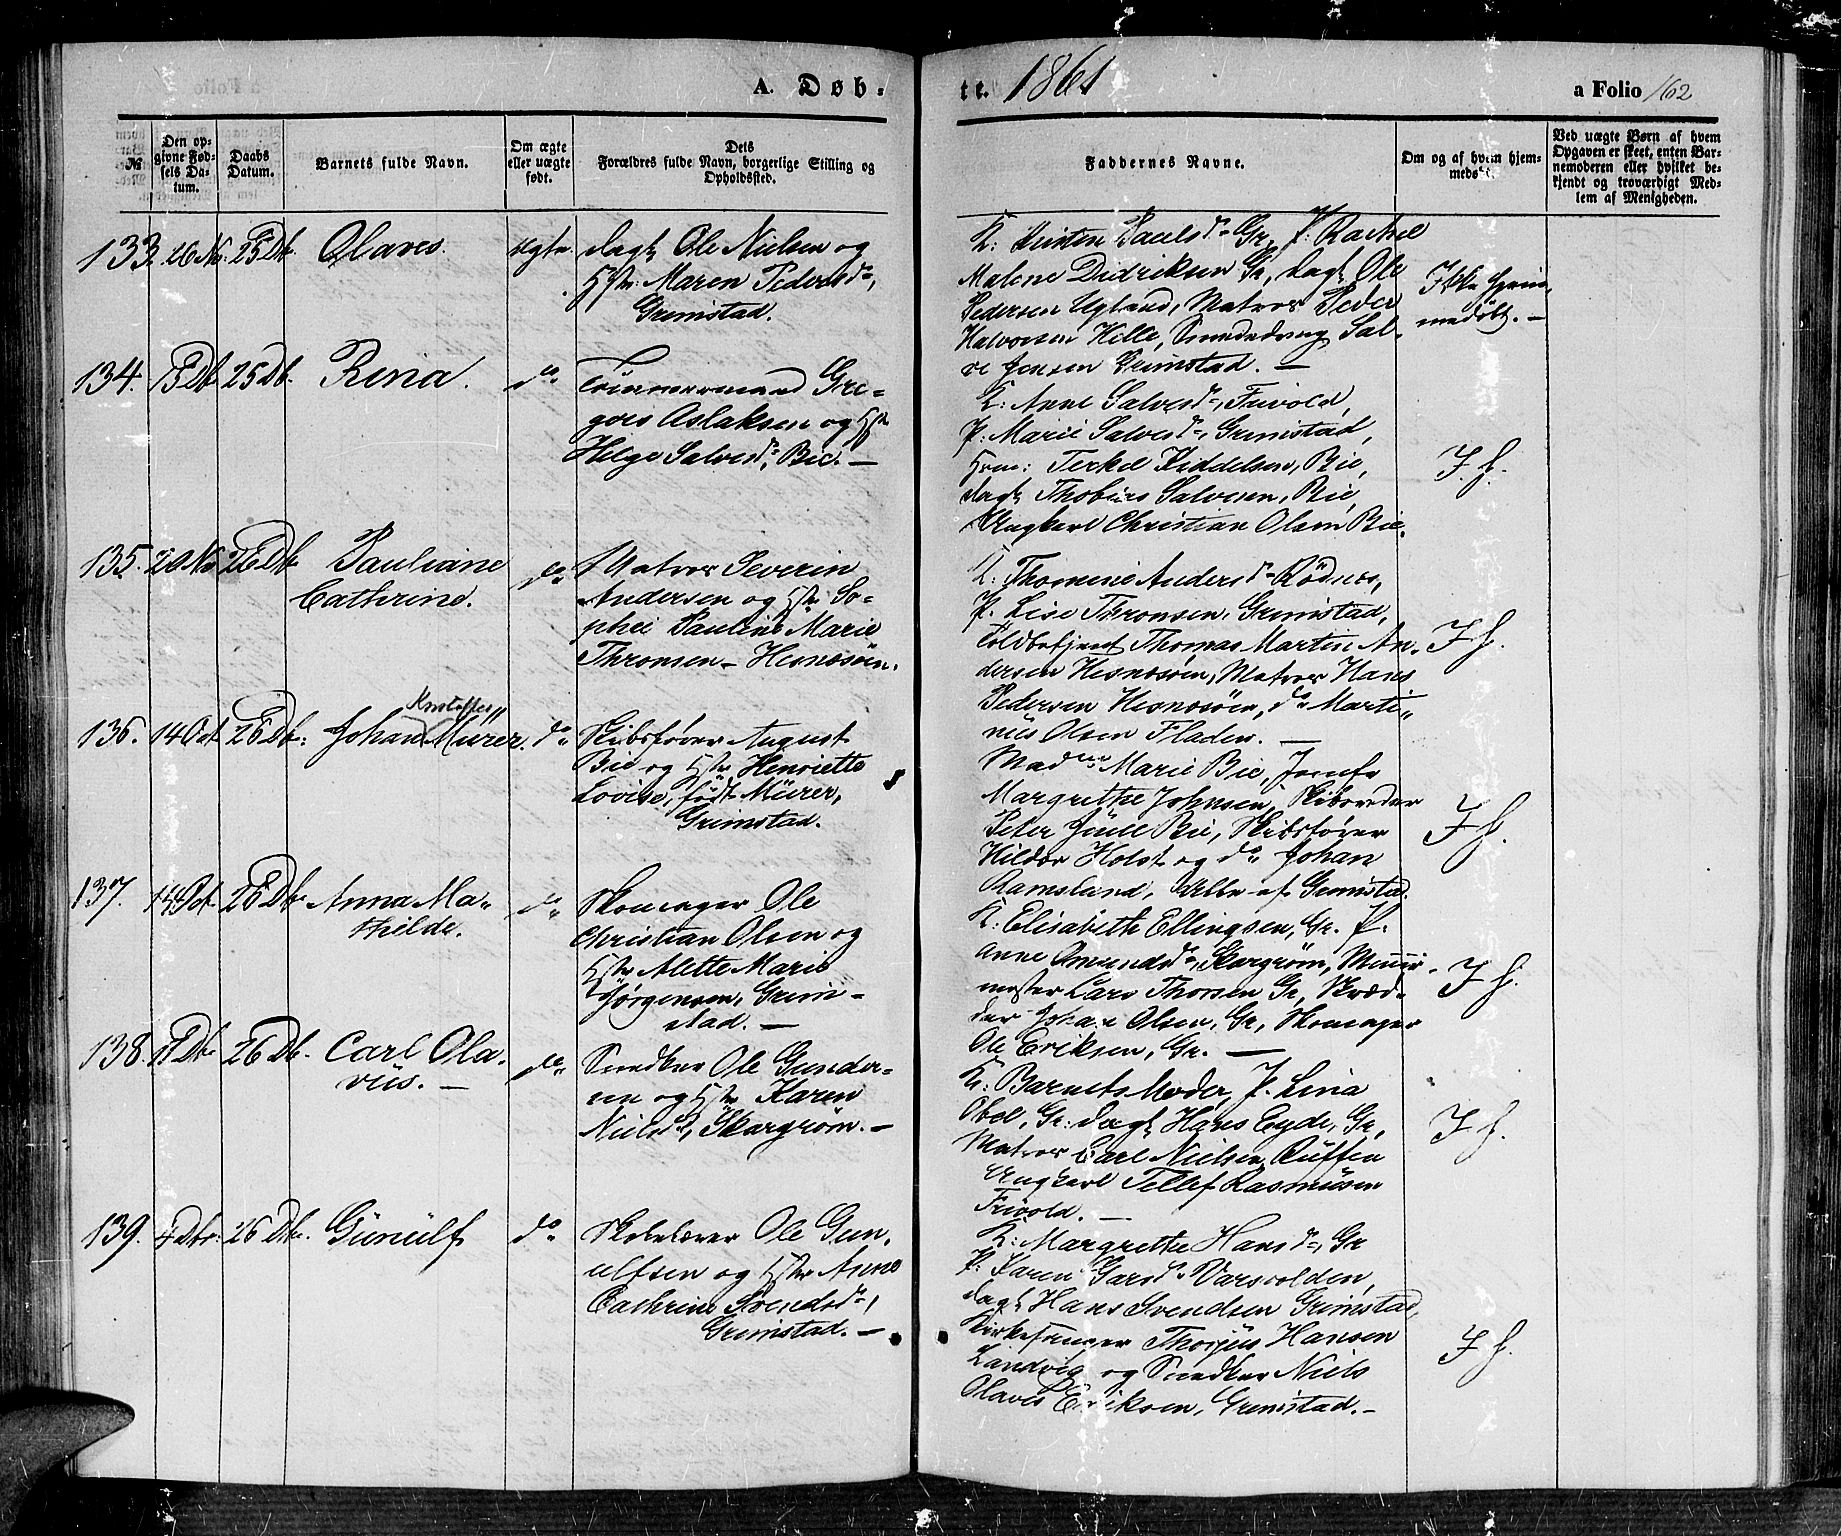 A. Døb-
tt. 1861
a Folio 162
№
Den op-
givne Fød-
sels Da-
tum.
Daabs
Datum.
Barnets fulde Navn.
Om ægte
eller uægte
født.
Dets
Forældres fulde Navn, borgerlige Stilling og
Opholdssted.
Faddernes Navne.
Om og af hvem hjem-
medøbt.
Ved uægte Børn af hvem
Opgaven er skeet, enten Bar-
nemoderen eller hvilket be-
kjendt og troværdigt Med-
lem af Menigheden.
133. 26 No. 25 Db. Olaves. ægte. Dagl. Ole Nielsen og
Hstr: Maren Pedersdr,
Grimstad.
K: Kirsten Paulsdr Gr, P: Rachel
Malene Didriksen Gr, Dagl Ole
Pedersen Ugland, Matros Peder
Halvorsen Hille, Smededreng Sal-
ve Jensen Grimstad. —
Ikke hjem-
medøbt. —
134. 25 Db. Rena. do
Tømmermand Gre-
gers Aslaksen og Hstr
Helge Salvesdr, Bie. —
K: Anne Salvesdr, Frivold,
P. Marie Salvesdr, Grimstad,
Terkel Kiddelsen, Bie,
Dagl Thobias Salvesen, Bie,
Ungkarl Christian Olsen Bie.
I. h.
135. 20 No 26 Db. Pauliane
Cathrine. do
Matros Severin
Andersen og Hstr So-
phei Pauline Marie
Thronsen — Hesnesøen.
K: Thomine Andersdr Rødnes,
P. Lise Thronsen, Grimstad,
Toldbetjent Thomas Martin An-
dersen Hesnesøen, Matros Hans
Pedersen Hesnesøen, do Marti-
nius Olsen Fladen. —
I h.
136. 14 Oct 26 Db: Johan Kristoffer Mürer. do
Skibsfører August
Bie og Hstr Henriette
Lovise, født Mürer,
Grimstad.
Madme Marie Bie, Jomfr
Margrethe Johnsen, Skibsreder
Peter Juell Bie, Skibsfører
Hildor Holst og do Johan
Ramslund, Alle af Grimstad.
I h.
137. 14 Oct. 26 Db. Anna Ma-
thilde. do
Skomager Ole
Christian Olsen og
Hstr Alette Marie
Jørgensen, Grim-
stad. —
K: Elisabeth Ellingsen, Gr. P.
Anne Omundsdr, Skargrøm, Muur-
mester Lars Thorsen Gr, Skræd-
der Johan Olsen, Gr, Skomager
Ole Eriksen, Gr. —
I h.
138. 26 Db. Carl Ola-
vus. — do
Snedker Ole Gunder-
sen og Hstr Karen
Nielsdr, Skargrøm. —
K: Barnets Moder, P. Lina
Obel, Gr: Dagl Hans Eyde, Gr,
Matros Carl Nielsen Ruffen
Ungkarl Tellef Rasmusen
Frivold. —
I h.
139. 4 Dbr. 26 Dbr. Günülf do
Skolelærer Ole Gun-
ulfsen og Hstr Anne
Cathrine Svendsdr,
Grimstad. —
K: Margrethe Hansdr, Gr
P. Karen Garsdr Varsvolden,
Dagl Hans Svendsen Grimstad,
Kirkesanger Thorjus Hansen
Landvig og Snedker Niels
Olaves Eriksen, Grimstad. —
I h.